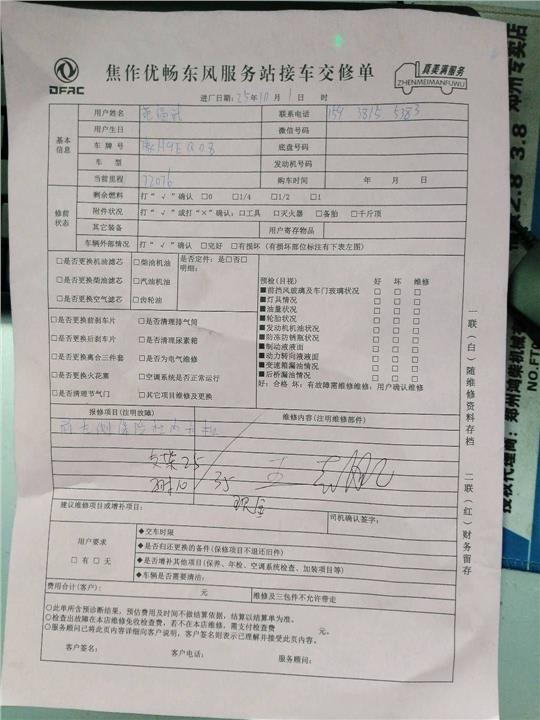 DFAC
焦作优畅东风服务站接车交修单
真美满服务
ZHENMEIMANFUWU
进厂日期：25年10月1日 时
基本信息
用户姓名
联系电话 159 3815 5383
用户生日
微信号码
车牌号
底盘号码
车型
发动机号码
当前里程 72076
购车时间 年 月 日
修前状态
剩余燃料 打“√”确认 □0 □1/4 □1/2 □1
附件状况 打“√”或打“×”确认：□工具 □灭火器 □备胎 □千斤顶
其它装备
用户寄存物品
车辆外部情况 打“√”确认 □完好 □有损坏（有损坏部位标注有下表左图）
□是否更换机油滤芯 □柴油机油
□是否更换柴油滤芯 □汽油机油
□是否更换空气滤芯 □齿轮油
是否定件：是□否□
明细：
□是否更换前刹车片 □是否清理排气筒
□是否更换后刹车片 □是否清理尿素箱
□是否更换离合三件套 □是否为电气维修
□是否更换火花塞 □空调系统是否正常运行
□是否清理节气门 □其它项目维修及更换
预检(目视) 好 坏 维修
■前挡风玻璃及车门玻璃状况 □ □ □
■灯具情况 □ □ □
■油量状况 □ □ □
■轮胎状况 □ □ □
■发动机机油状况 □ □ □
■防冻防锈瓶状况 □ □ □
■制动液液面 □ □ □
■动力转向液液面 □ □ □
■变速箱漏油情况 □ □ □
■后桥漏油情况 □ □ □
好：合格 坏：有故障需维修维修：用户确认维修
报修项目(注明故障)
维修内容(注明维修部件)
支架25
35
建议维修项目或增补项目：
司机确认签字：
用户要求
□有□无
◆交车时限
◆是否归还更换的备件(保修项目不退还旧件)
◆是否增补其他项目(保养、年检、空调系统检查、加装项目等)
◆车辆是否需要清洁：
费用合计(客户)： 元
维修及三包件不允许带走
○此单所含预诊断结果，预估费用及时间不做结算依据，结算以结算单为准。
○检查出故障在本店维修免收检查费，若不在本店维修，需支付检查费 元。
○服务顾问已将此页内容详细向客户说明，客户签名则表示已理解并接受此页内容。
客户签名：
客户电话：
服务顾问：
一联（白）随维修资料存档
二联（红）财务留存
2.8 3.8
NO.FT0